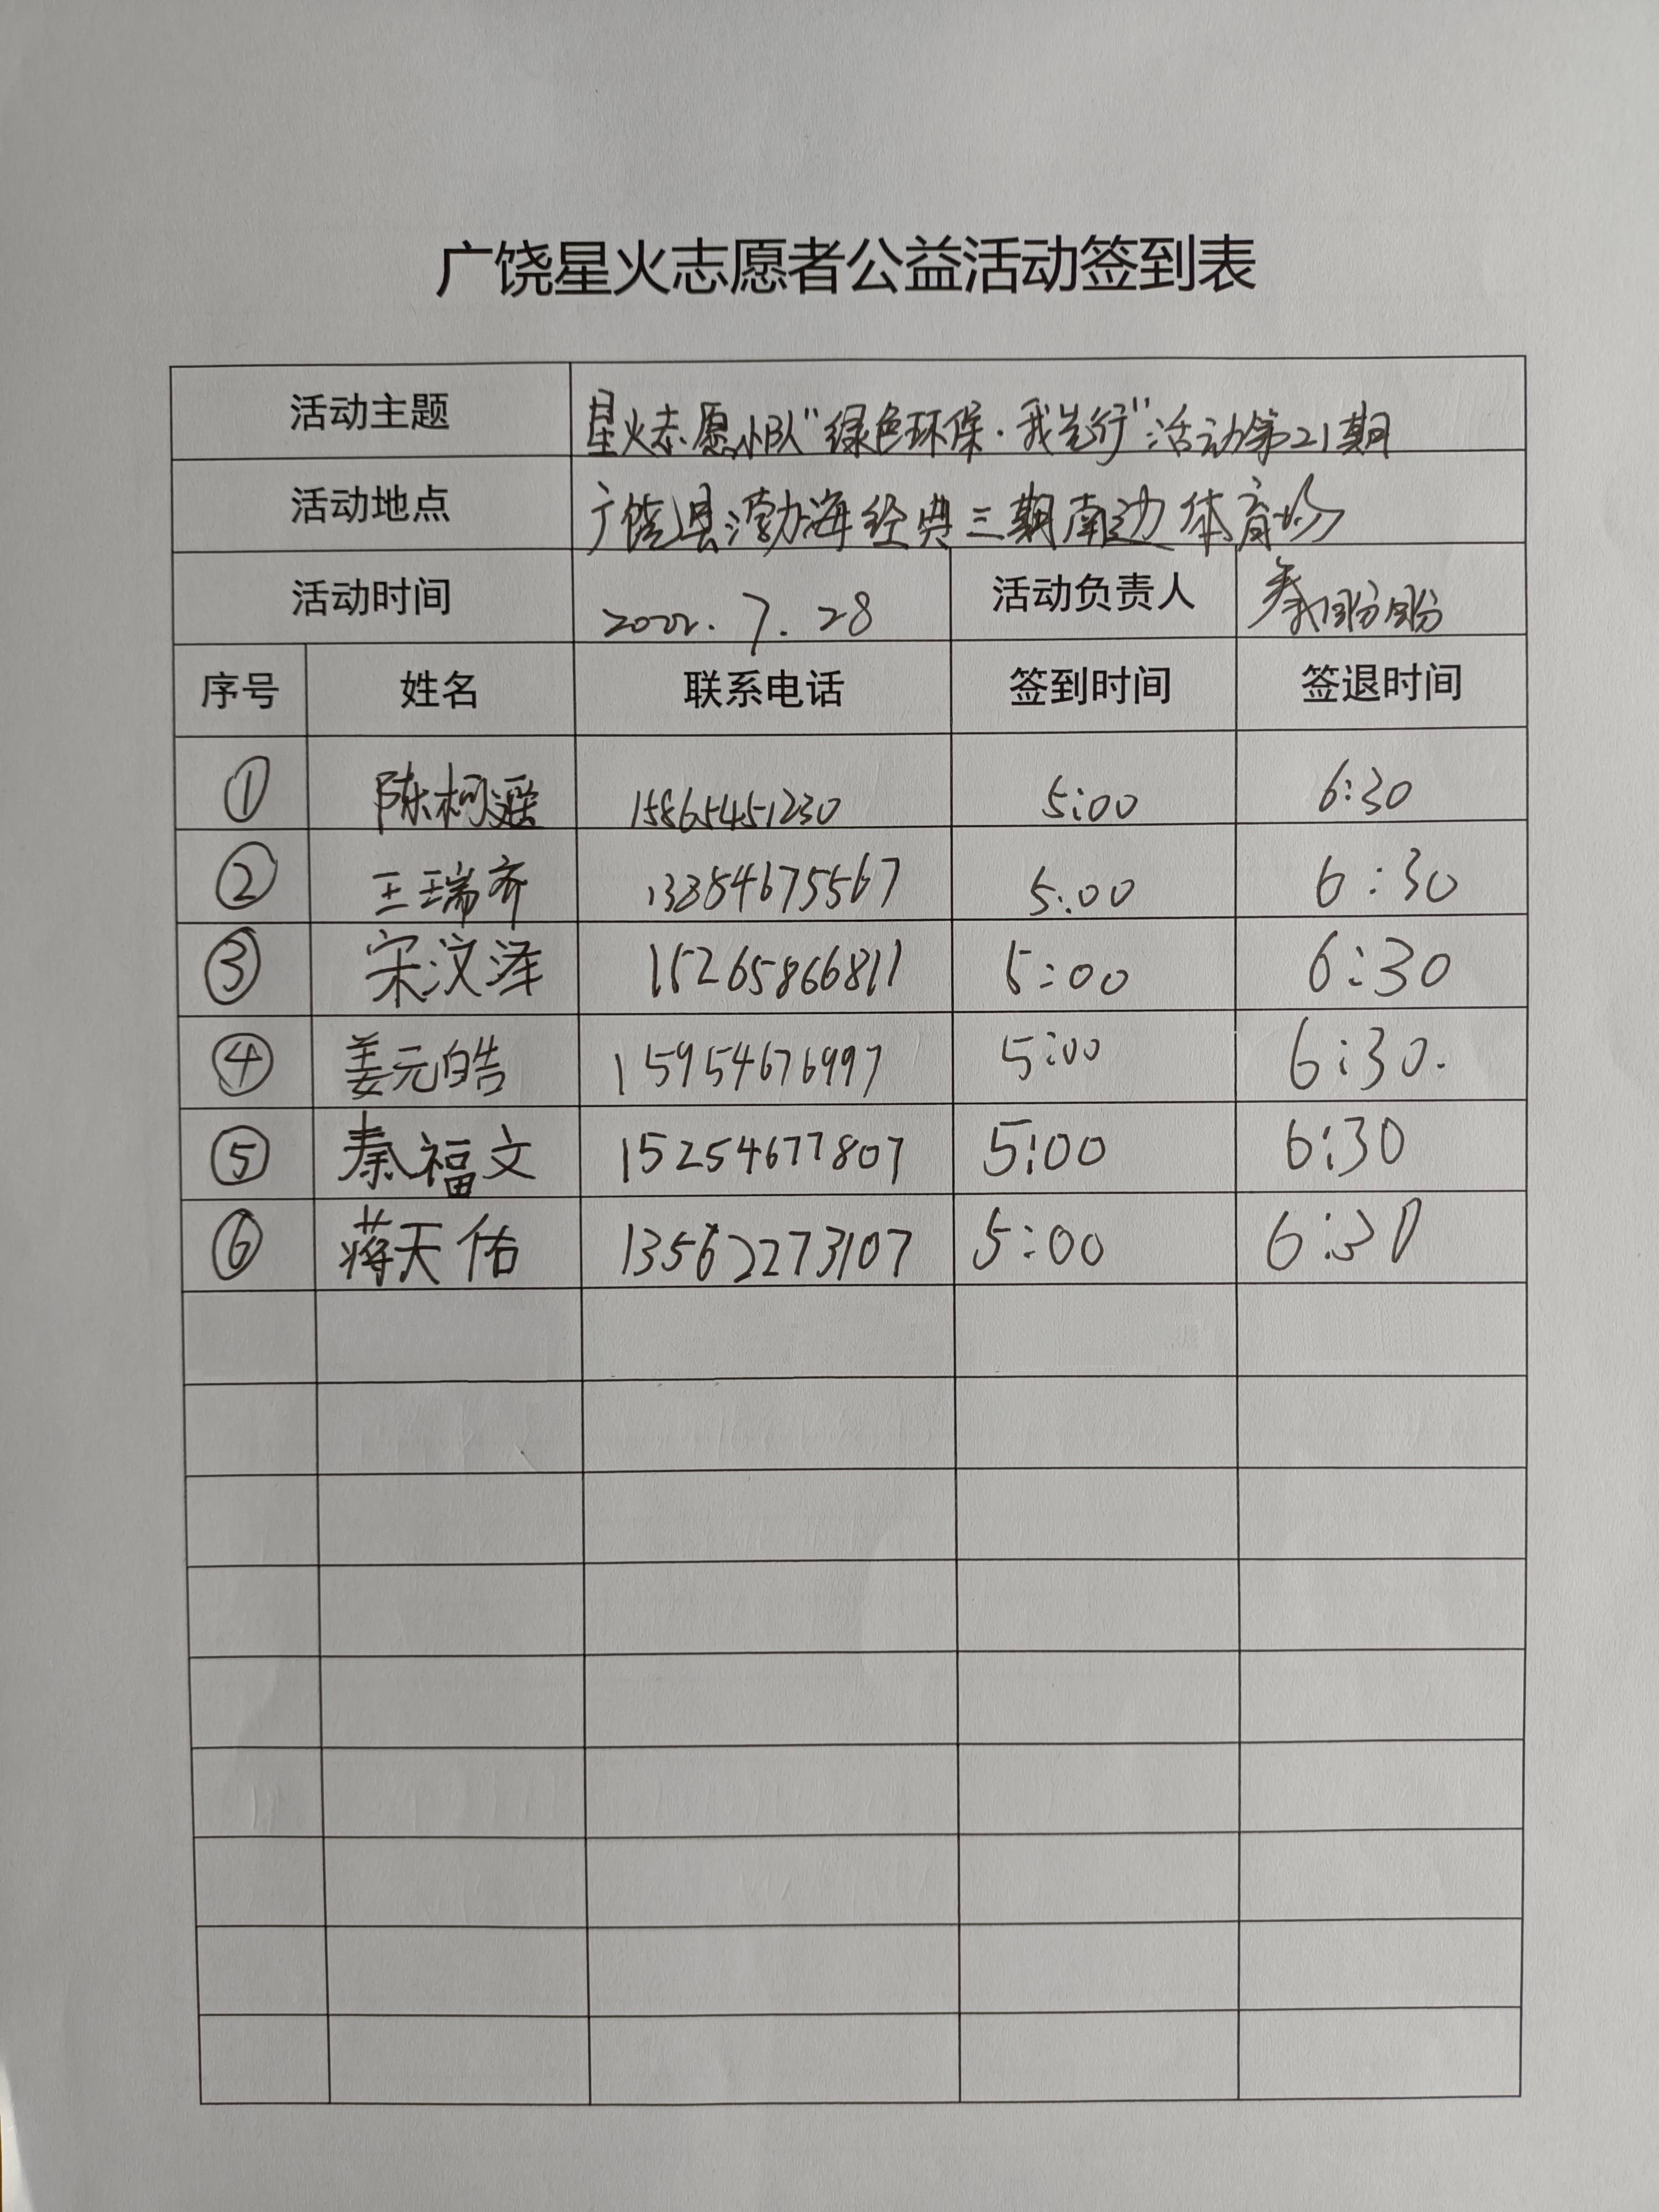 广饶星火志愿者公益活动签到表
活动主题 星火志愿小队"绿色环保·我先行"活动第21期
活动地点 广饶县渤海经典三期南边体育场
活动时间 2022.7.28 活动负责人 秦
序号 姓名 联系电话 签到时间 签退时间
① 陈柯 15865451230 5:00 6:30
② 王瑞齐 13884675567 5:00 6:30
③ 宋汶泽 15265866811 5:00 6:30
④ 姜元皓 15954676997 5:00 6:30.
⑤ 秦福文 15254677807 5:00 6:30
⑥ 蒋天佑 13562273107 5:00 6:30